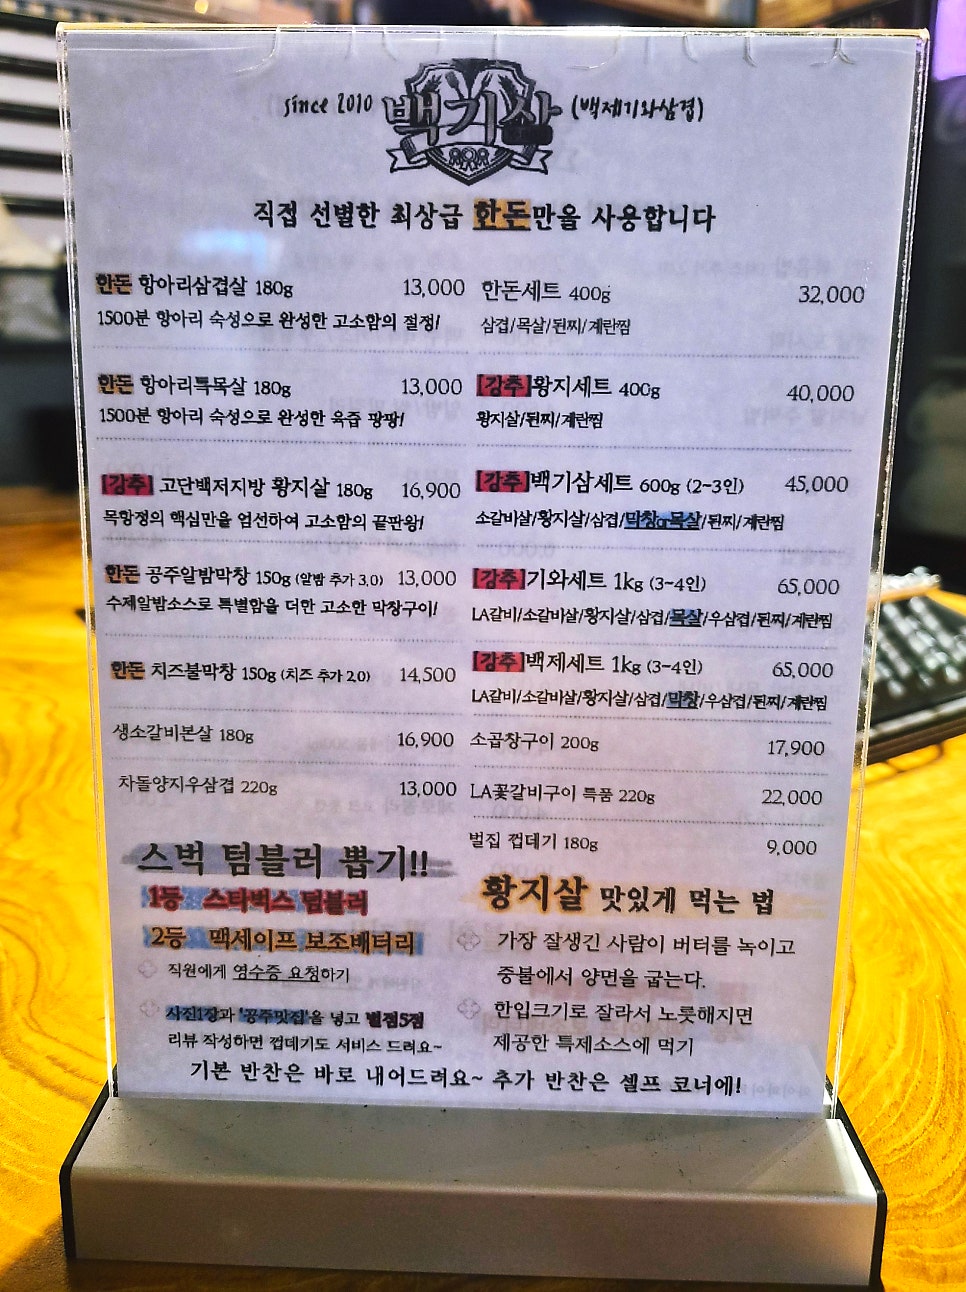 since 2010 백기삼 (백제기와삼겹)
직접 선별한 최상급 한돈만을 사용합니다
한돈 항아리삼겹살 180g 13,000
1500분 항아리 숙성으로 완성한 고소함의 절정!
한돈 항아리특목살 180g 13,000
1500분 항아리 숙성으로 완성한 육즙 팡팡!
[강추] 고단백저지방 황지살 180g 16,900
목항정의 핵심만을 엄선하여 고소함의 끝판왕!
한돈 공주알밤막창 150g (알밤 추가 3,0) 13,000
수제알밤소스로 특별함을 더한 고소한 막창구이!
한돈 치즈불막창 150g (치즈 추가 2,0) 14,500
생소갈비본살 180g 16,900
차돌양지우삼겹 220g 13,000
한돈세트 400g 32,000
삼겹/목살/된찌/계란찜
[강추]황지세트 400g 40,000
황지살/된찌/계란찜
[강추]백기삼세트 600g (2~3인) 45,000
소갈비살/황지살/삼겹/막창or목살/된찌/계란찜
[강추]기와세트 1kg (3~4인) 65,000
LA갈비/소갈비살/황지살/삼겹/목살/우삼겹/된찌/계란찜
[강추]백제세트 1kg (3~4인) 65,000
LA갈비/소갈비살/황지살/삼겹/막창/우삼겹/된찌/계란찜
소곱창구이 200g 17,900
LA꽃갈비구이 특품 220g 22,000
벌집 껍데기 180g 9,000
스벅 텀블러 뽑기!!
1등 스타벅스 텀블러
2등 맥세이프 보조배터리
직원에게 영수증 요청하기
사진1장과 '공주맛집'을 넣고 별점5점
리뷰 작성하면 껍데기도 서비스 드려요~
황지살 맛있게 먹는 법
가장 잘생긴 사람이 버터를 녹이고
중불에서 양면을 굽는다.
한입크기로 잘라서 노릇해지면
제공한 특제소스에 먹기
기본 반찬은 바로 내어드려요~ 추가 반찬은 셀프 코너에!